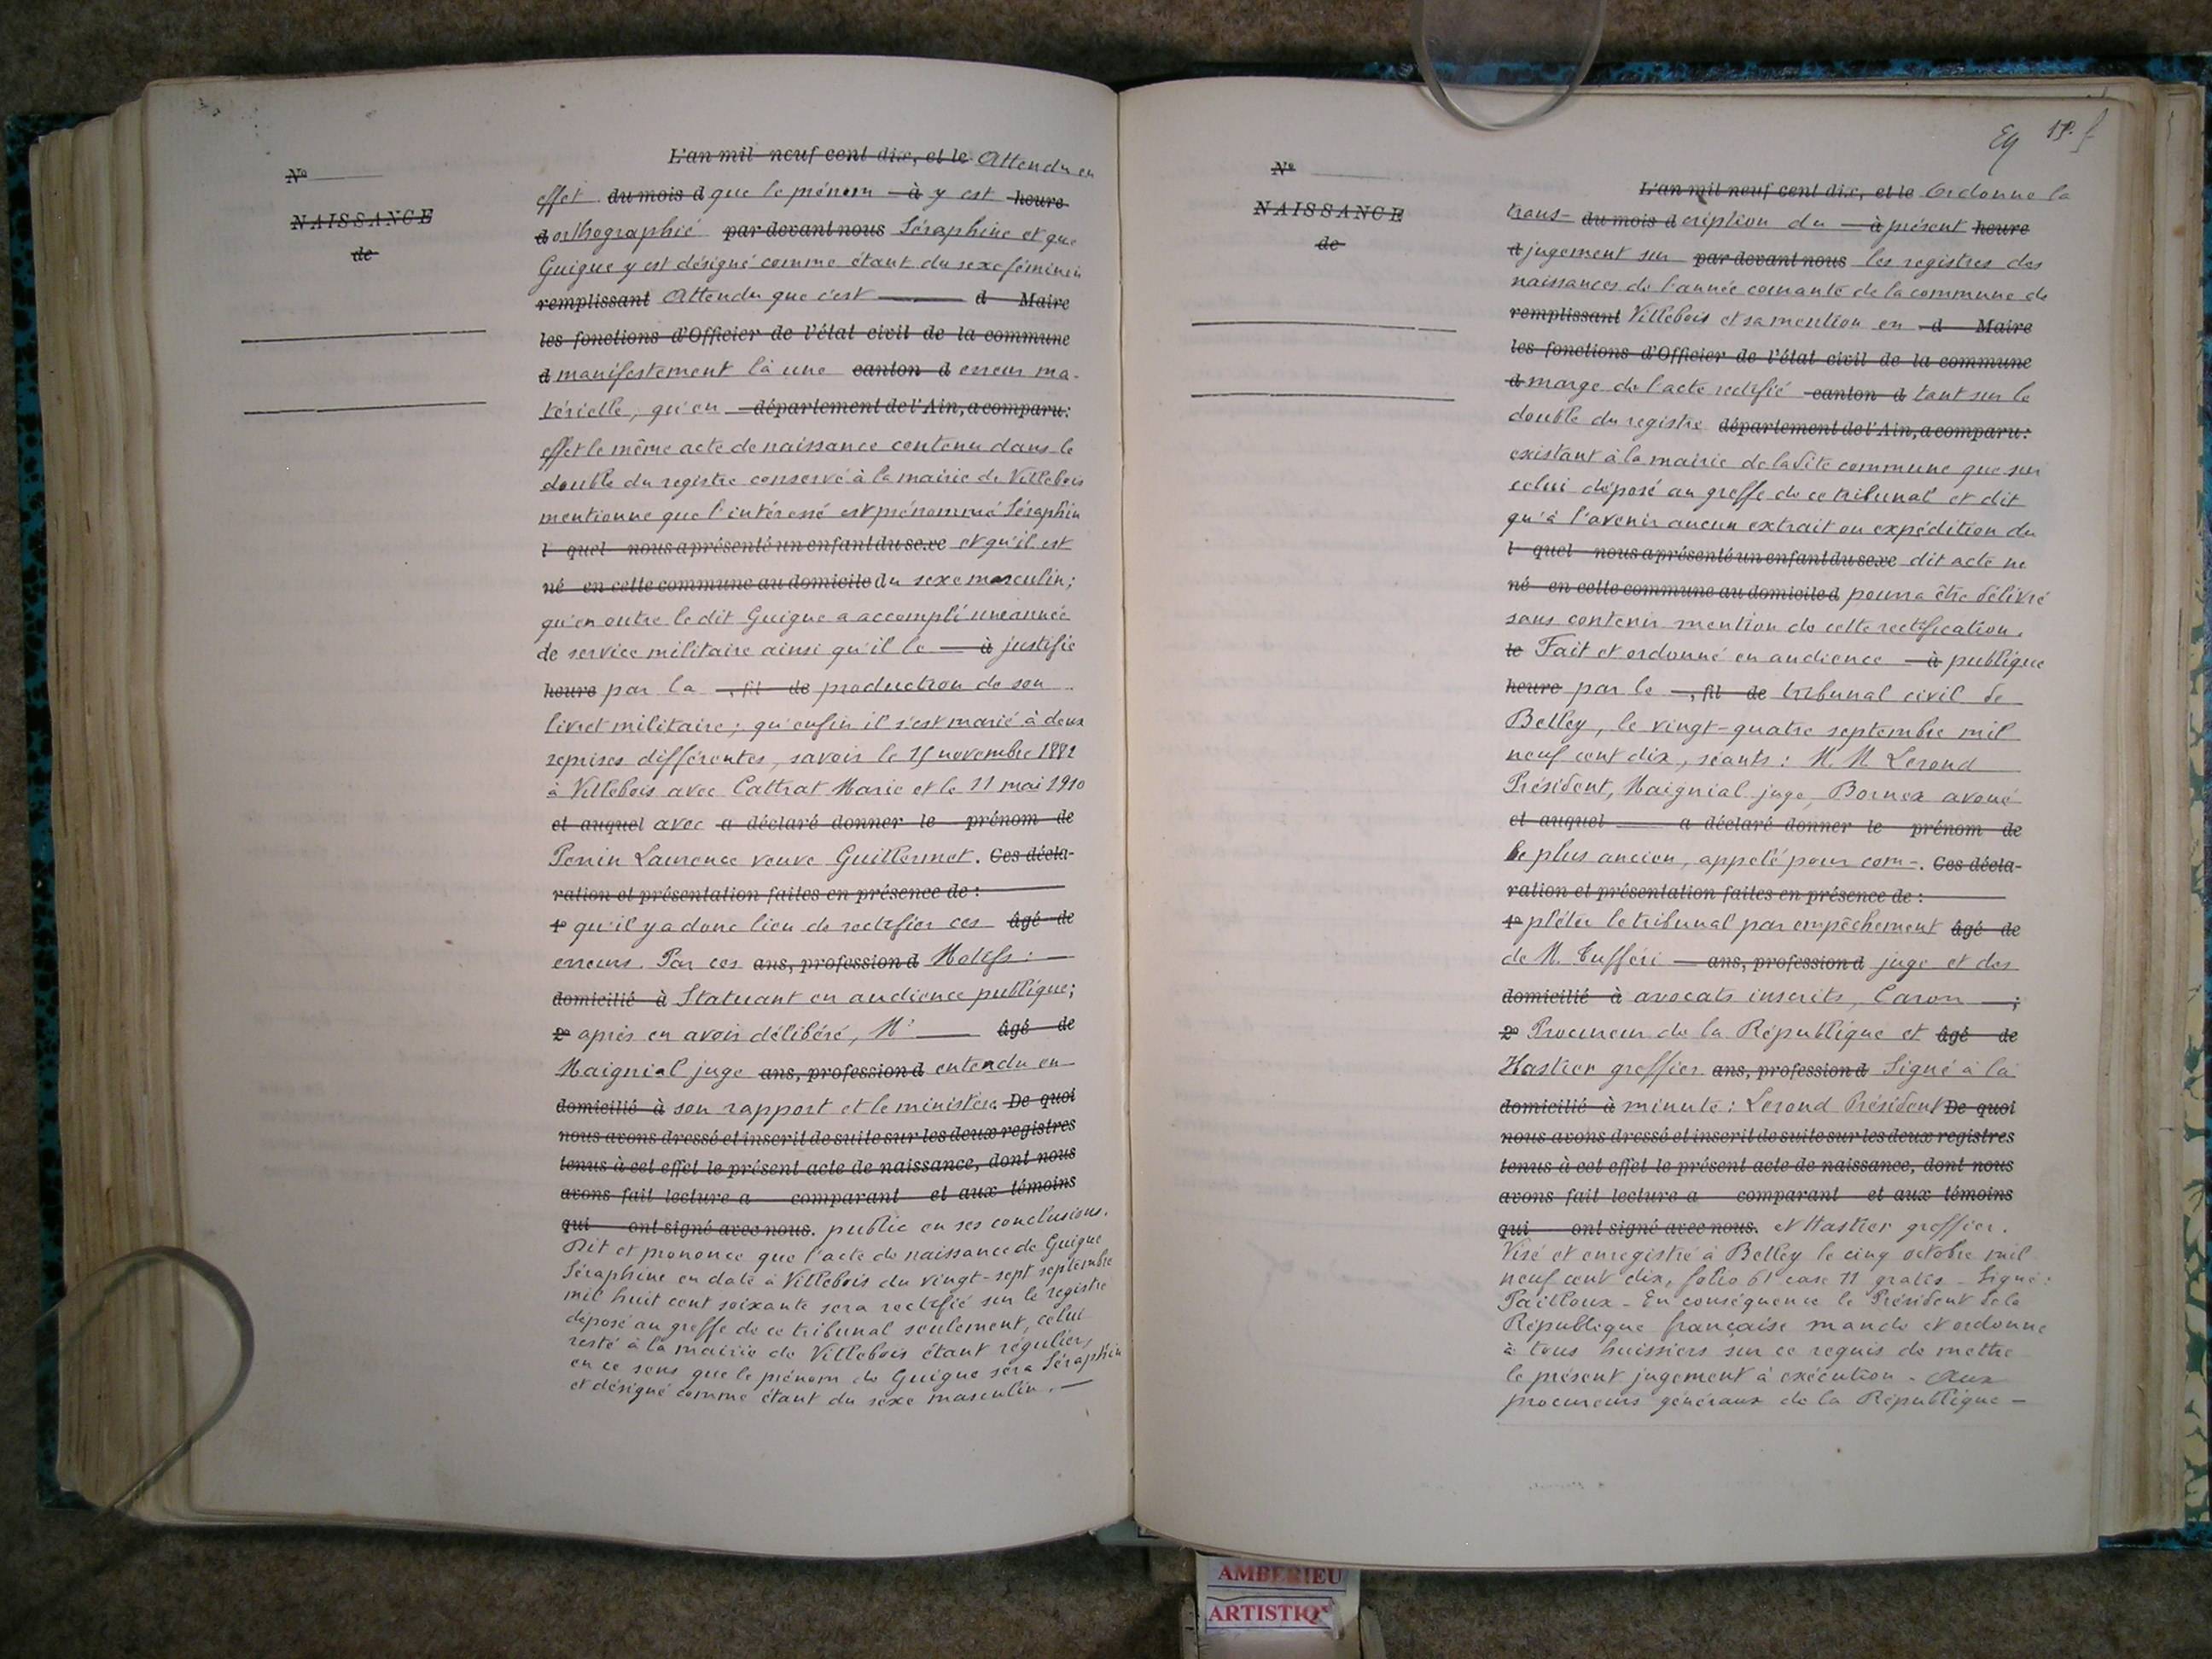 N°
NAISSANCE
de
L'an mil neuf cent dix, et le Attendu en
effet du mois d que le prénom à y est heure
d orthographié par-devant nous Séraphine et que
Guigue y est désigné comme étant du sexe féminin
remplissant Attendu que c'est d Maire
les fonctions d'Officier de l'état civil de la commune
d manifestement là une canton d erreur ma-
térielle, qu'en département de l'Ain, a comparu:
effet le même acte de naissance contenu dans le
double du registre conservé à la mairie de Villebois
mentionne que l'intéressé est prénommé Séraphin
l quel nous a présenté un enfant du sexe et qu'il est
né en cette commune au domicile du sexe masculin;
qu'en outre le dit Guigue a accompli une année
de service militaire ainsi qu'il le à justifie
heure par la , fil de production de son
livret militaire; qu'enfin il s'est marié à deux
reprises différentes, savoir le novembre
à Villebois avec Cattrat Marie et le 11 mai 1910
et auquel avec a déclaré donner le prénom de
Perrin Laurence veuve Guillermet. Ces décla-
ration et présentation faites en présence de :
1° qu'il y a donc lieu de rectifier ces âgé de
erreurs. Par ces ans, profession d Motifs :
domicilié à Statuant en audience publique;
2° après en avoir délibéré, Mr âgé de
Maignial juge ans, profession d entendu en
domicilié à son rapport et le ministère. De quoi
nous avons dressé et inscrit de suite sur les deux registres
tenus à cet effet le présent acte de naissance, dont nous
avons fait lecture a comparant et aux témoins
qui ont signé avec nous. public en ses conclusions.
Dit et prononce que l'acte de naissance de Guigue
Séraphine en date à Villebois du vingt-sept septembre
mil huit cent soixante sera rectifié sur le registre
déposé au greffe de ce tribunal seulement, celui
resté à la mairie de Villebois étant régulier,
en ce sens que le prénom de Guigue sera Séraphin
et désigné comme étant du sexe masculin.
N°
NAISSANCE
de
L'an mil neuf cent dix, et le Ordonne la
trans- du mois d cription du à présent heure
d jugement sur par-devant nous les registres des
naissances de l'année courante de la commune de
remplissant Villebois et sa mention en d Maire
les fonctions d'Officier de l'état civil de la commune
d marge de l'acte rectifié canton d tant sur le
double du registre département de l'Ain, a comparu:
existant à la mairie de ladite commune que sur
celui déposé au greffe de ce tribunal et dit
qu'à l'avenir aucun extrait ou expédition du
l quel nous a présenté un enfant du sexe dit acte ne
né en cette commune au domicile d pourra être délivré
sans contenir mention de cette rectification.
le Fait et ordonné en audience à publique
heure par le , fil de tribunal civil de
Belley, le vingt-quatre septembre mil
neuf cent dix, séants : M. M. Lerond
Président, Maignial juge, Bornex avoué
et auquel a déclaré donner le prénom de
le plus ancien, appelé pour com-. Ces décla-
ration et présentation faites en présence de :
1° pléter le tribunal par empêchement âgé de
de M. Tufféri ans, profession d juge et des
domicilié à avocats inscrits, Caron ;
2° Procureur de la République et âgé de
Hastier greffier ans, profession d Signé à la
domicilié à minute : Lerond Président De quoi
nous avons dressé et inscrit de suite sur les deux registres
tenus à cet effet le présent acte de naissance, dont nous
avons fait lecture a comparant et aux témoins
qui ont signé avec nous. et Hastier greffier.
Visé et enregistré à Belley le cinq octobre mil
neuf cent dix, folio 61 case 11 gratis - Signé :
Pailloux - En conséquence le Président de la
République française mande et ordonne
à tous huissiers sur ce requis de mettre
le présent jugement à exécution - Aux
procureurs généraux de la République -
AMBERIEU
ARTISTIQ